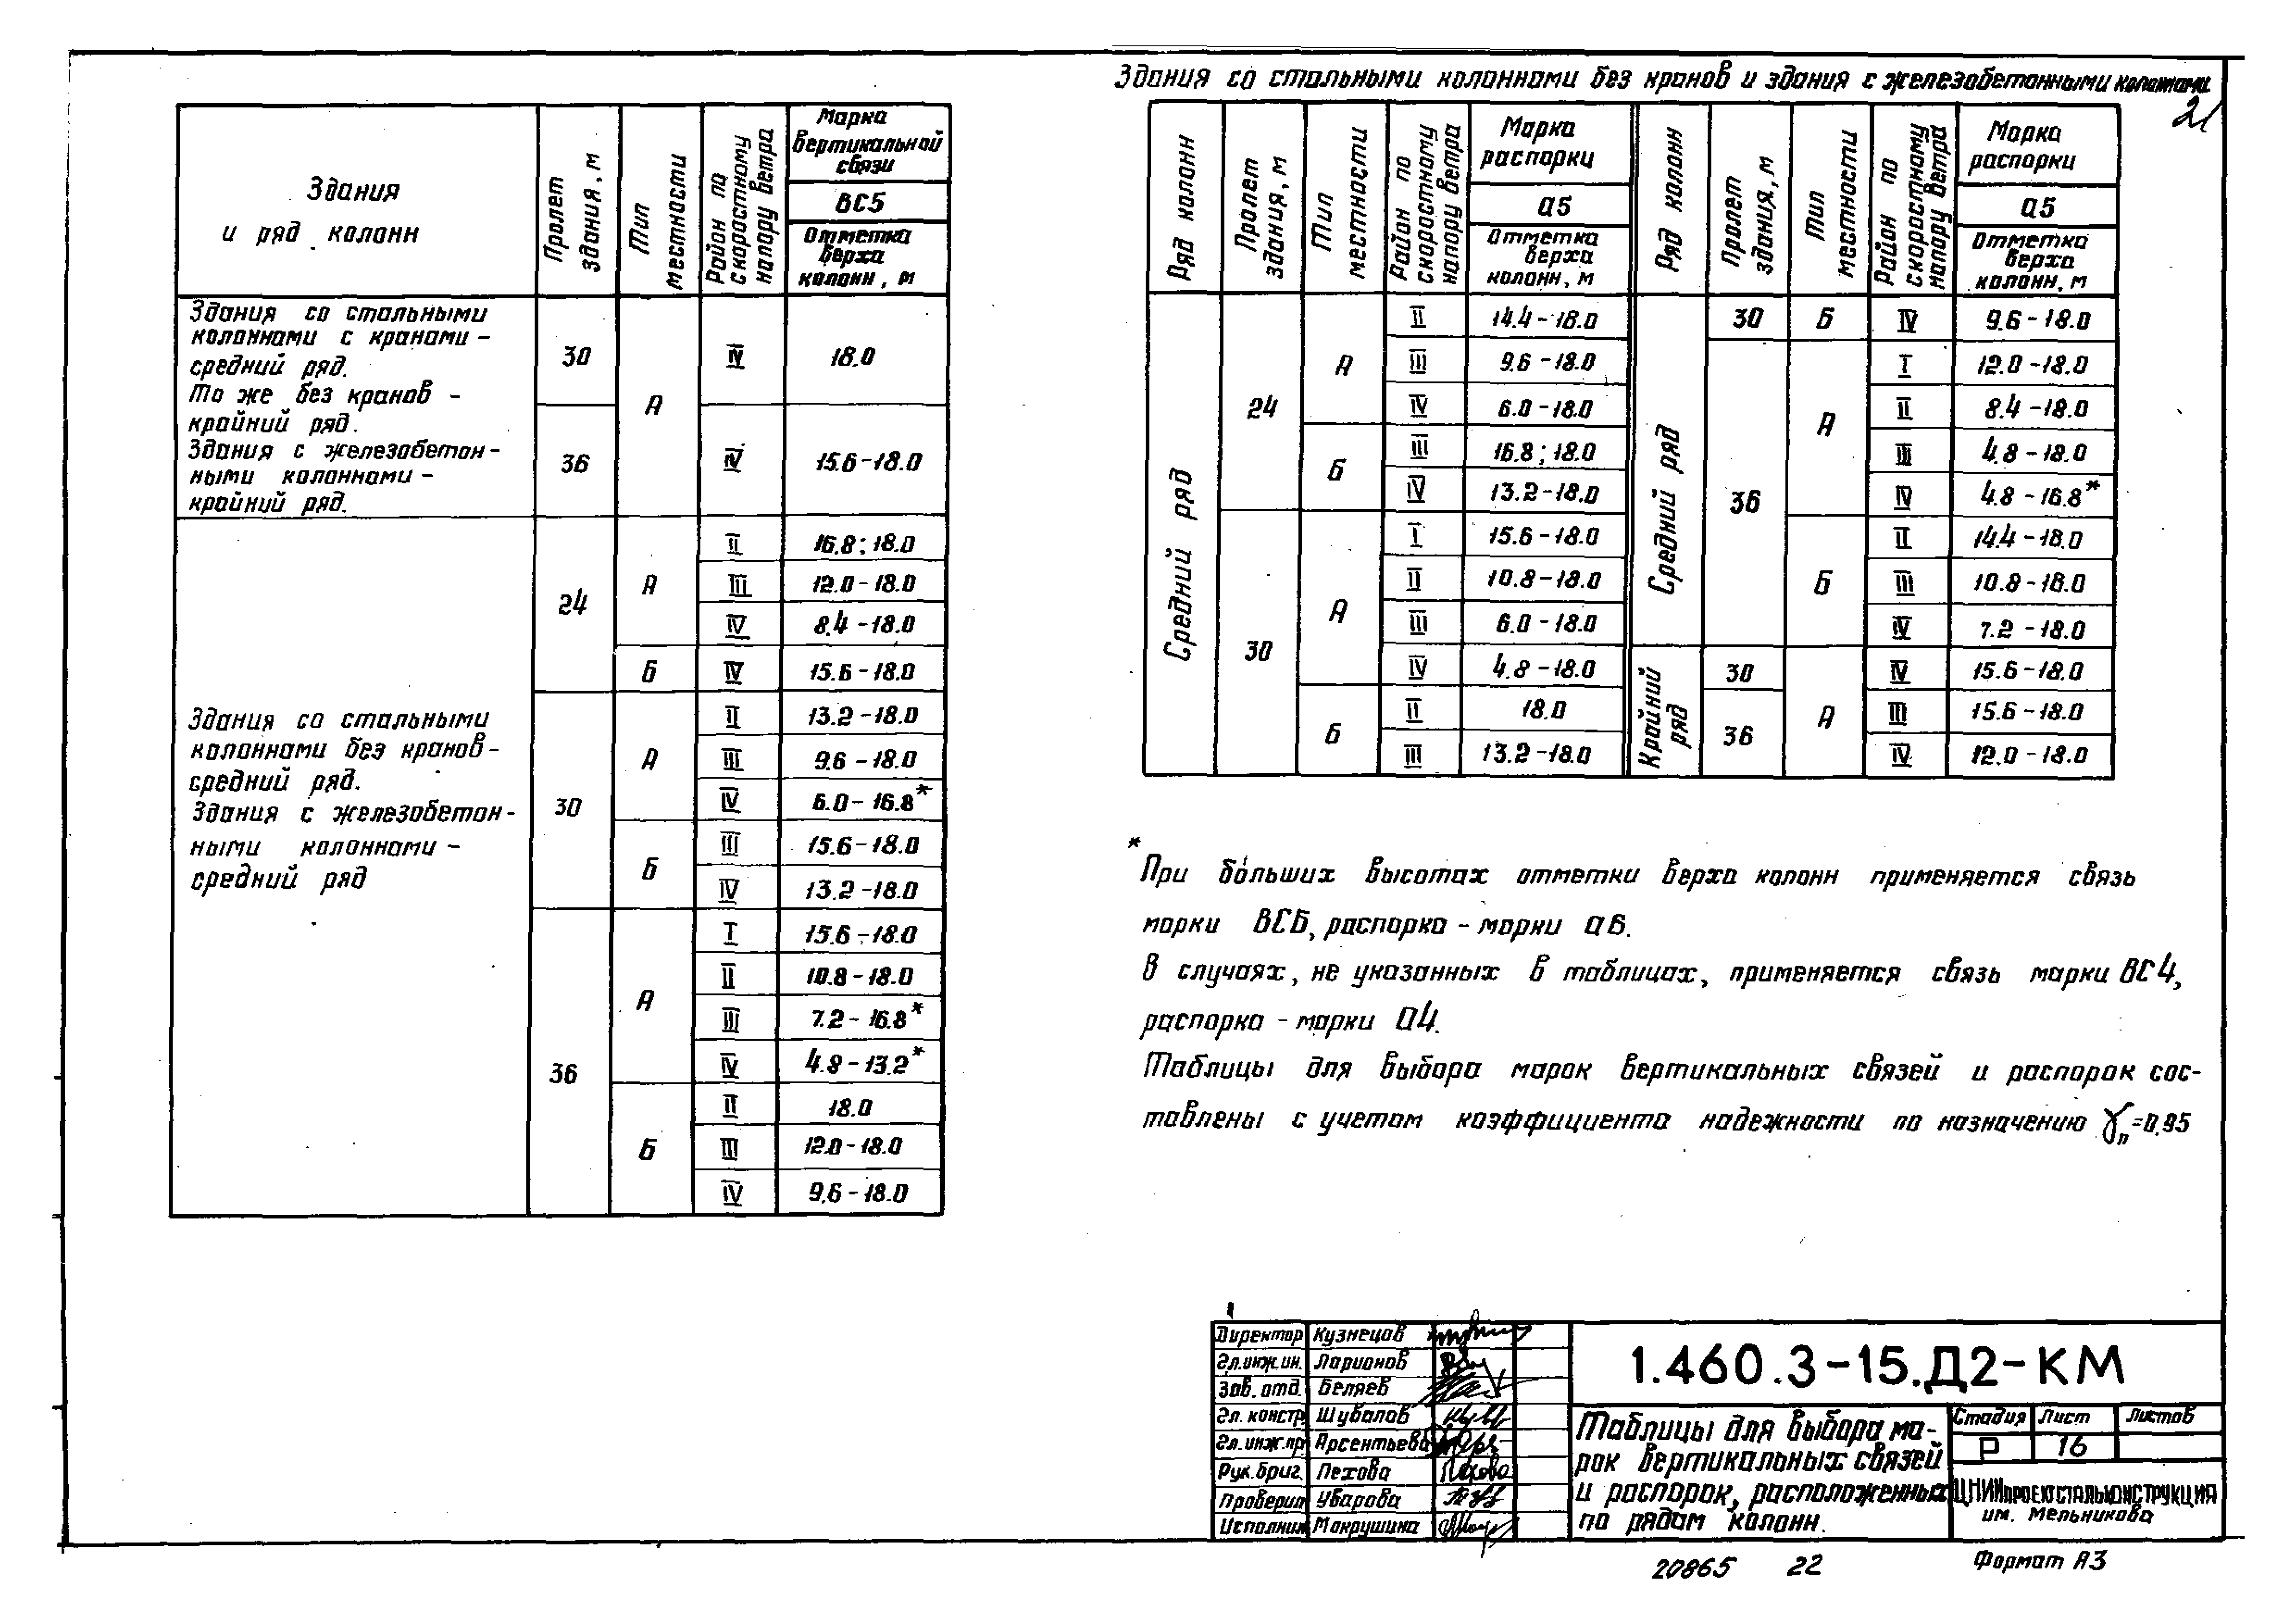 Здания со стальными колоннами без кранов и здания с железобетонными колоннами.
21
Здания
и ряд колонн
Пролет здания, м
Тип местности
Район по скоростному напору ветра
Марка вертикальной связи
ВС5
Отметка верха колонн, м
Здания со стальными
колоннами с кранами –
средний ряд.
То же без кранов –
крайний ряд.
Здания с железобетон-
ными колоннами –
крайний ряд.
30 А IV 18.0
36 IV 15.6-18.0
Здания со стальными
колоннами без кранов-
средний ряд.
Здания с железобетон-
ными колоннами –
средний ряд
24 А II 16.8; 18.0
III 12.0-18.0
IV 8.4-18.0
Б IV 15.6-18.0
30 А II 13.2-18.0
III 9.6-18.0
IV 6.0-16.8*
Б III 15.6-18.0
IV 13.2-18.0
36 А I 15.6-18.0
II 10.8-18.0
III 7.2-16.8*
IV 4.8-13.2*
Б II 18.0
III 12.0-18.0
IV 9.6-18.0
Ряд колонн
Пролет здания, м
Тип местности
Район по скоростному напору ветра
Марка распорки
а5
Отметка верха колонн, м
Средний ряд
24 А II 14.4-18.0
III 9.6-18.0
IV 6.0-18.0
Б III 16.8; 18.0
IV 13.2-18.0
30 А I 15.6-18.0
II 10.8-18.0
III 6.0-18.0
IV 4.8-18.0
Б II 18.0
III 13.2-18.0
Ряд колонн
Пролет здания, м
Тип местности
Район по скоростному напору ветра
Марка распорки
а5
Отметка верха колонн, м
Средний ряд
30 Б IV 9.6-18.0
36 А I 12.0-18.0
II 8.4-18.0
III 4.8-18.0
IV 4.8-16.8*
Б II 14.4-18.0
III 10.8-18.0
IV 7.2-18.0
Крайний ряд
30 А IV 15.6-18.0
36 III 15.6-18.0
IV 12.0-18.0
* При бо́льших высотах отметки верха колонн применяется связь
марки ВС6, распорка – марки а6.
В случаях, не указанных в таблицах, применяется связь марки ВС4,
распорка – марки а4.
Таблицы для выбора марок вертикальных связей и распорок сос-
тавлены с учетом коэффициента надежности по назначению γп=0.95
Директор Кузнецов
Гл.инж.ин. Ларионов
Зав. отд. Беляев
Гл. констр. Шувалов
Гл.инж.пр. Арсентьева
Рук.бриг. Пехова
Проверил Уварова
Исполнил Макрушина
1.460.3-15.Д2-КМ
Таблицы для выбора ма-
рок вертикальных связей
и распорок, расположенных
по рядам колонн.
Стадия Лист Листов
Р 16
ЦНИИПРОЕКТСТАЛЬКОНСТРУКЦИЯ
им. Мельникова
20865 22
Формат А3